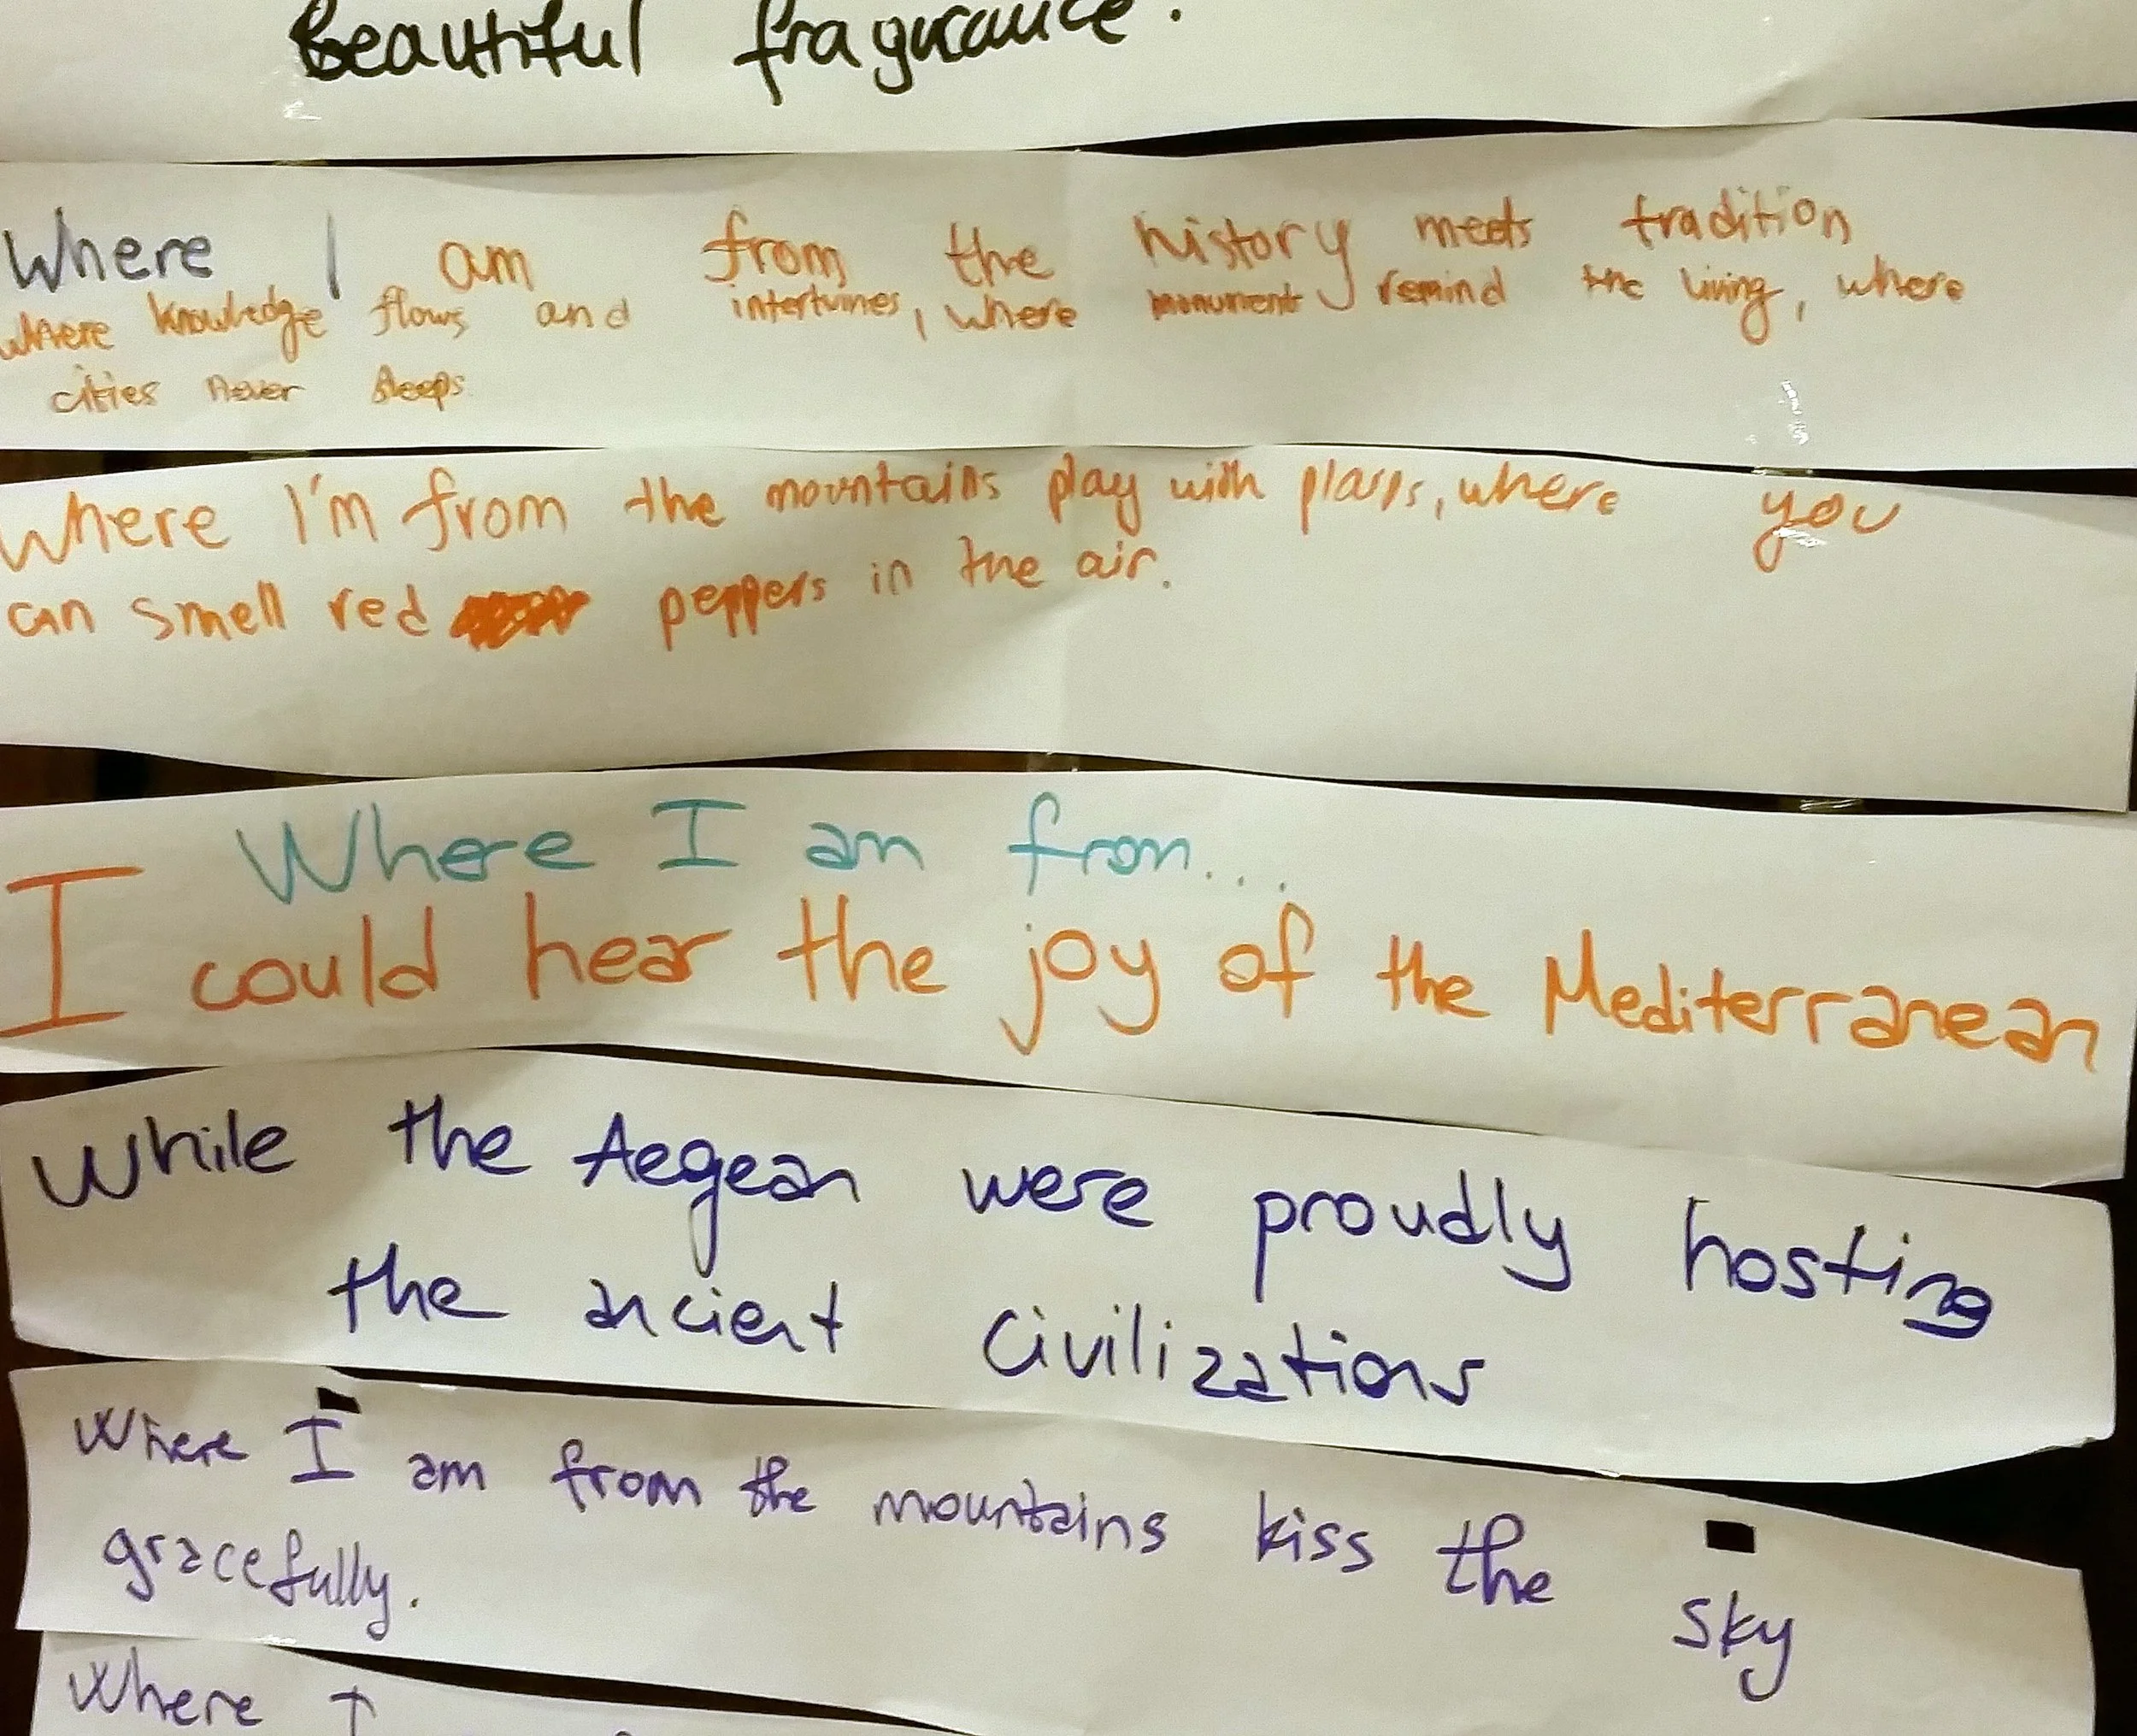 Beautiful fragurance.
Where I am from the history meets tradition
where knowledge flows and intertwines, where monuments remind the living, where
cities never sleeps
Where I'm from the mountains play with plains, where you
can smell red peppers in the air.
Where I am from...
I could hear the joy of the Mediterranean
While the Aegean were proudly hosting
the ancient Civilizations
Where I am from the mountains kiss the sky
gracefully.
Where I